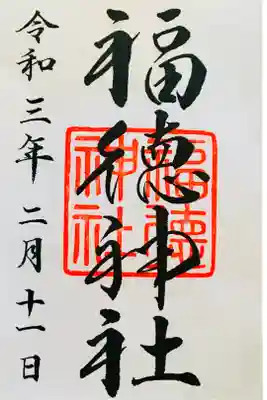 福徳神社
福徳
神社
令和三年二月十一日